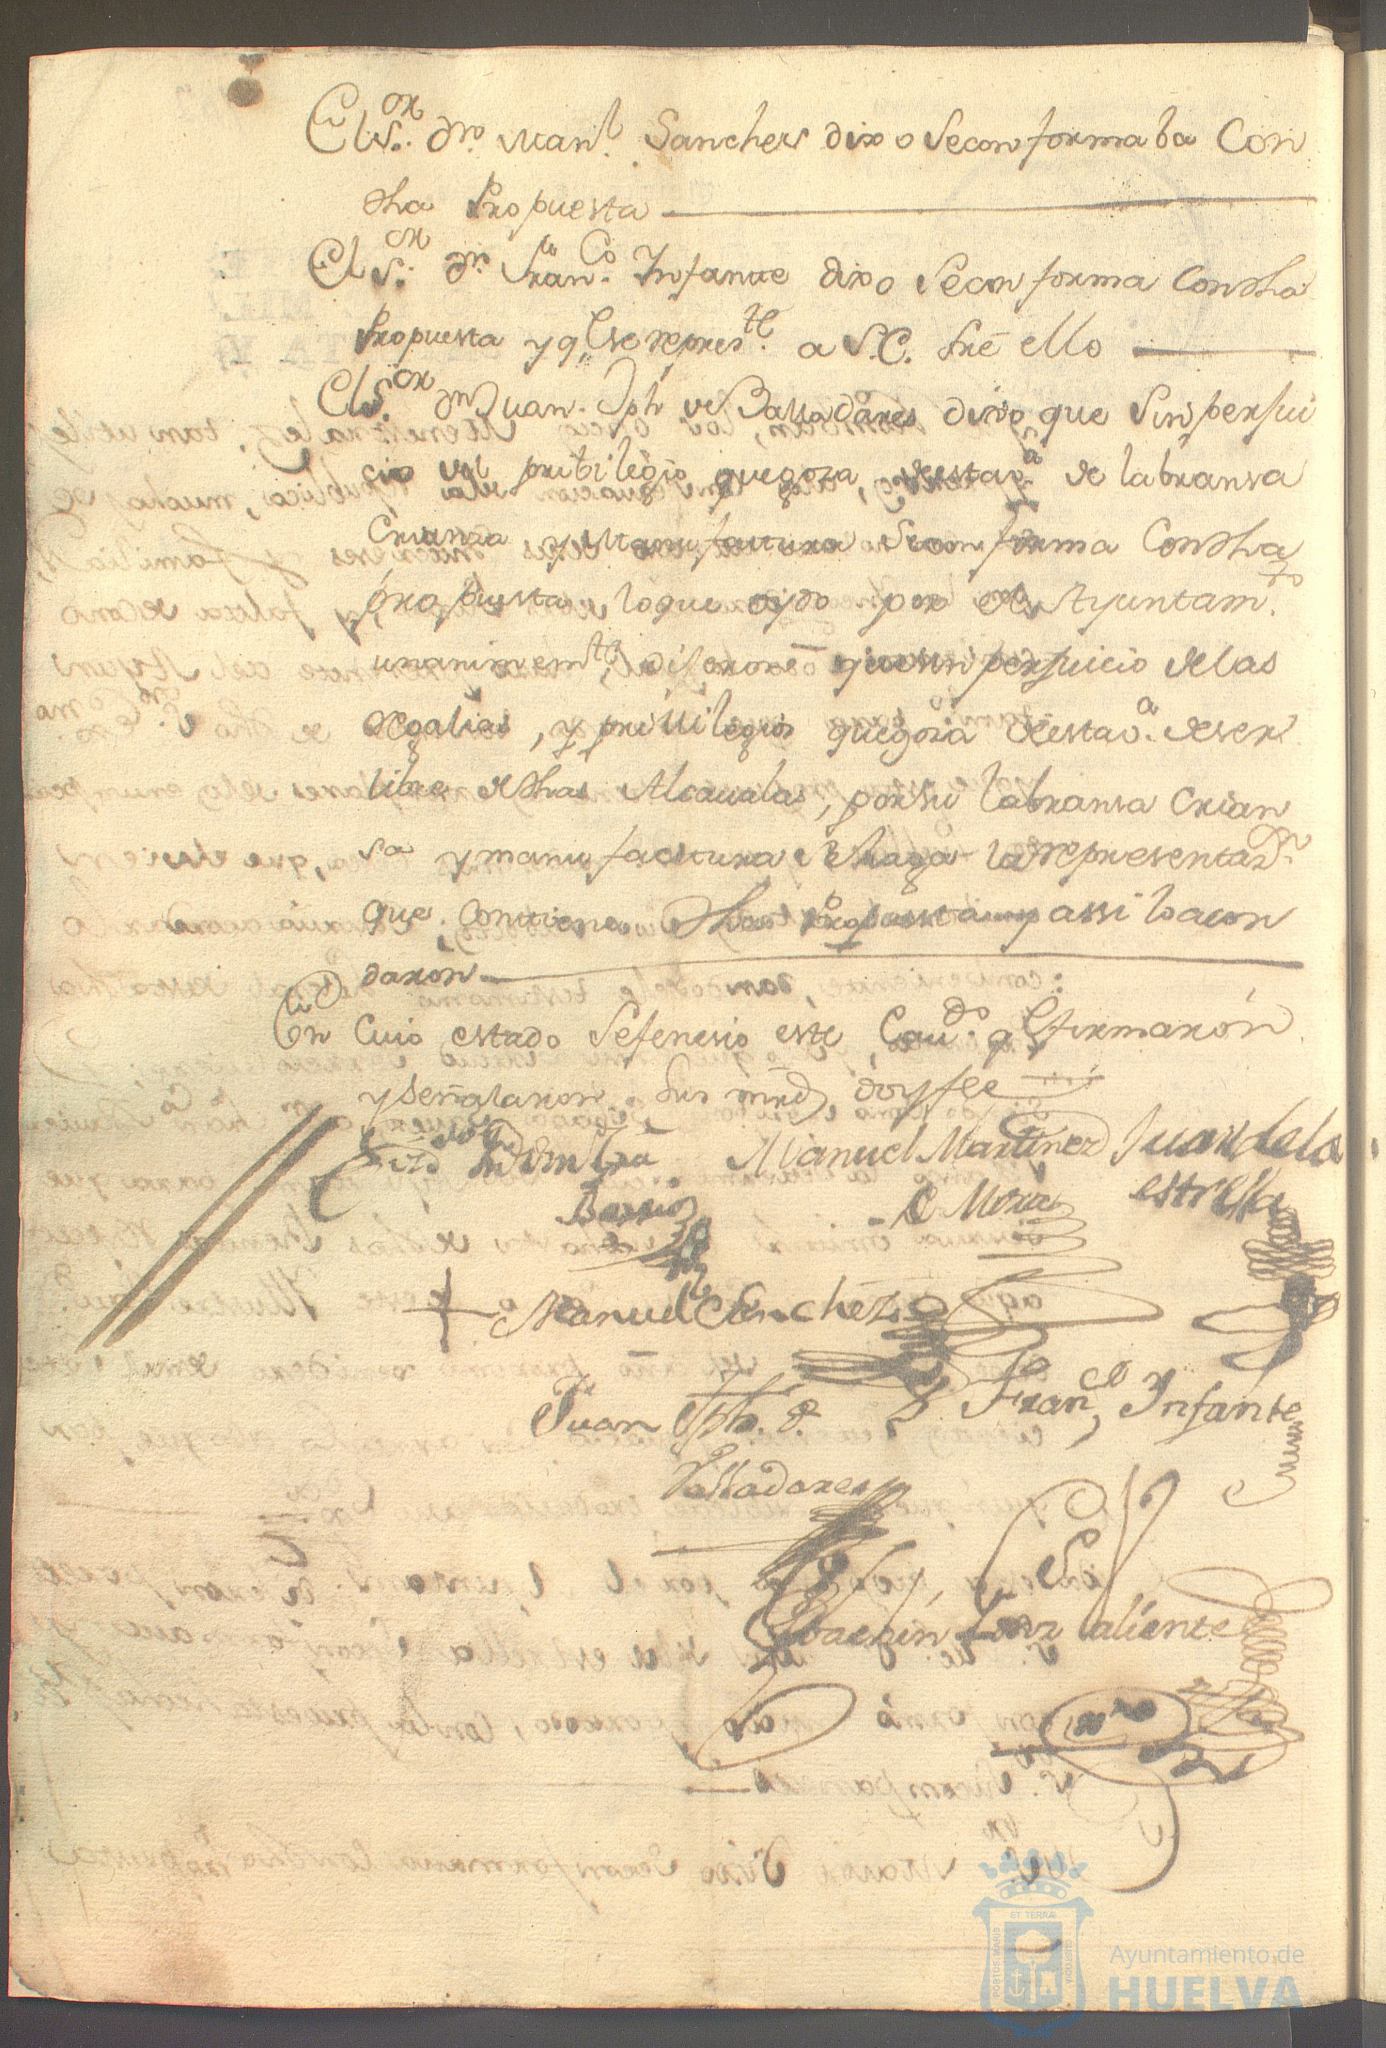 El S.or dn. Man.l Sanches dixo Seconformaba Con
dha Propuesta
El S.or dn. Fran.co Infante dixo Seconforma Condha
Propuesta y q.e se repres.te a S.E. sre ello
El S.or dn Juan Jph de Balladares dixo que Sin perjui
cio del pribilegio quegoza, deesta v.a de labransa
Crianza y Manufactura Seconforma Condha
propuesta, loque oydo por el Ayuntam.to
unanimem.te, dixeron que sin perjuicio delas
Regalias, y privilegios quegoza deesta v.a deser
libre dedhas Alcavalas, por su labransa Crian
sa y manufactura se haga la representaz.n
que contiene dha Propuesta y assi lo acor
daron
En Cuio estado Sefenesio este Cau.do q.e firmarón
y señalaron Sus mrds, doyfee
Manuel Martinez Juan dela
Barrio de Mora estrella
Manuel Sanchez
Juan Jph. d. Fran.co Infante
Valladares
Joachin Valiente
ET TERRÆ
PORTUS MARIS
CUSTODIA
Ayuntamiento de
HUELVA